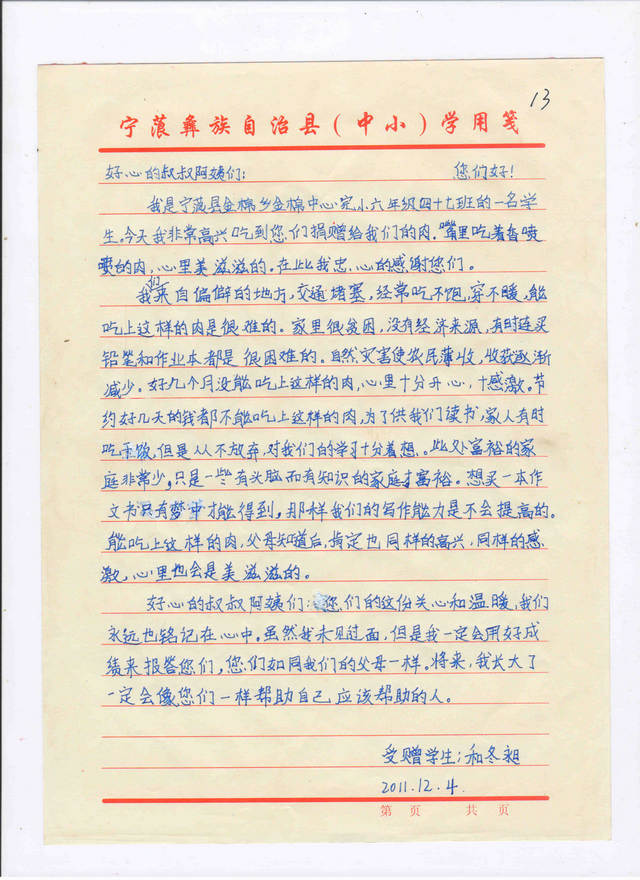 13
宁蒗彝族自治县(中小)学用笺
好心的叔叔阿姨们: 您们好!
我是宁蒗县金棉乡金棉中心完小六年级四十九班的一名学
生。今天我非常高兴吃到您们捐赠给我们的肉。嘴里吃着香喷
喷的肉,心里美滋滋的。在此我忠心的感谢您们。
我们来自偏僻的地方,交通堵塞,经常吃不饱,穿不暖,能
吃上这样的肉是很难的。家里很贫困,没有经济来源,有时连买
铅笔和作业本都是很困难的。自然灾害使农民薄收,收获逐渐
减少。好几个月没能吃上这样的肉,心里十分开心,十感激。节
约好几天的钱都不能吃上这样的肉,为了供我们读书,家人有时
吃干饭,但是从不放弃,对我们的学习十分着想。此处富裕的家
庭非常少,只是一些有头脑而有知识的家庭才富裕。想买一本作
文书只有梦中才能得到,那样我们的写作能力是不会提高的。
能吃上这样的肉,父母知道后,肯定也同样的高兴,同样的感
激,心里也会是美滋滋的。
好心的叔叔阿姨们:您们的这份关心和温暖,我们
永远也铭记在心中。虽然我未见过面,但是我一定会用好成
绩来报答您们,您们如同我们的父母一样。将来,我长大了
一定会像您们一样帮助自己应该帮助的人。
受赠学生:和冬昶
2011.12.4.
第 页 共 页